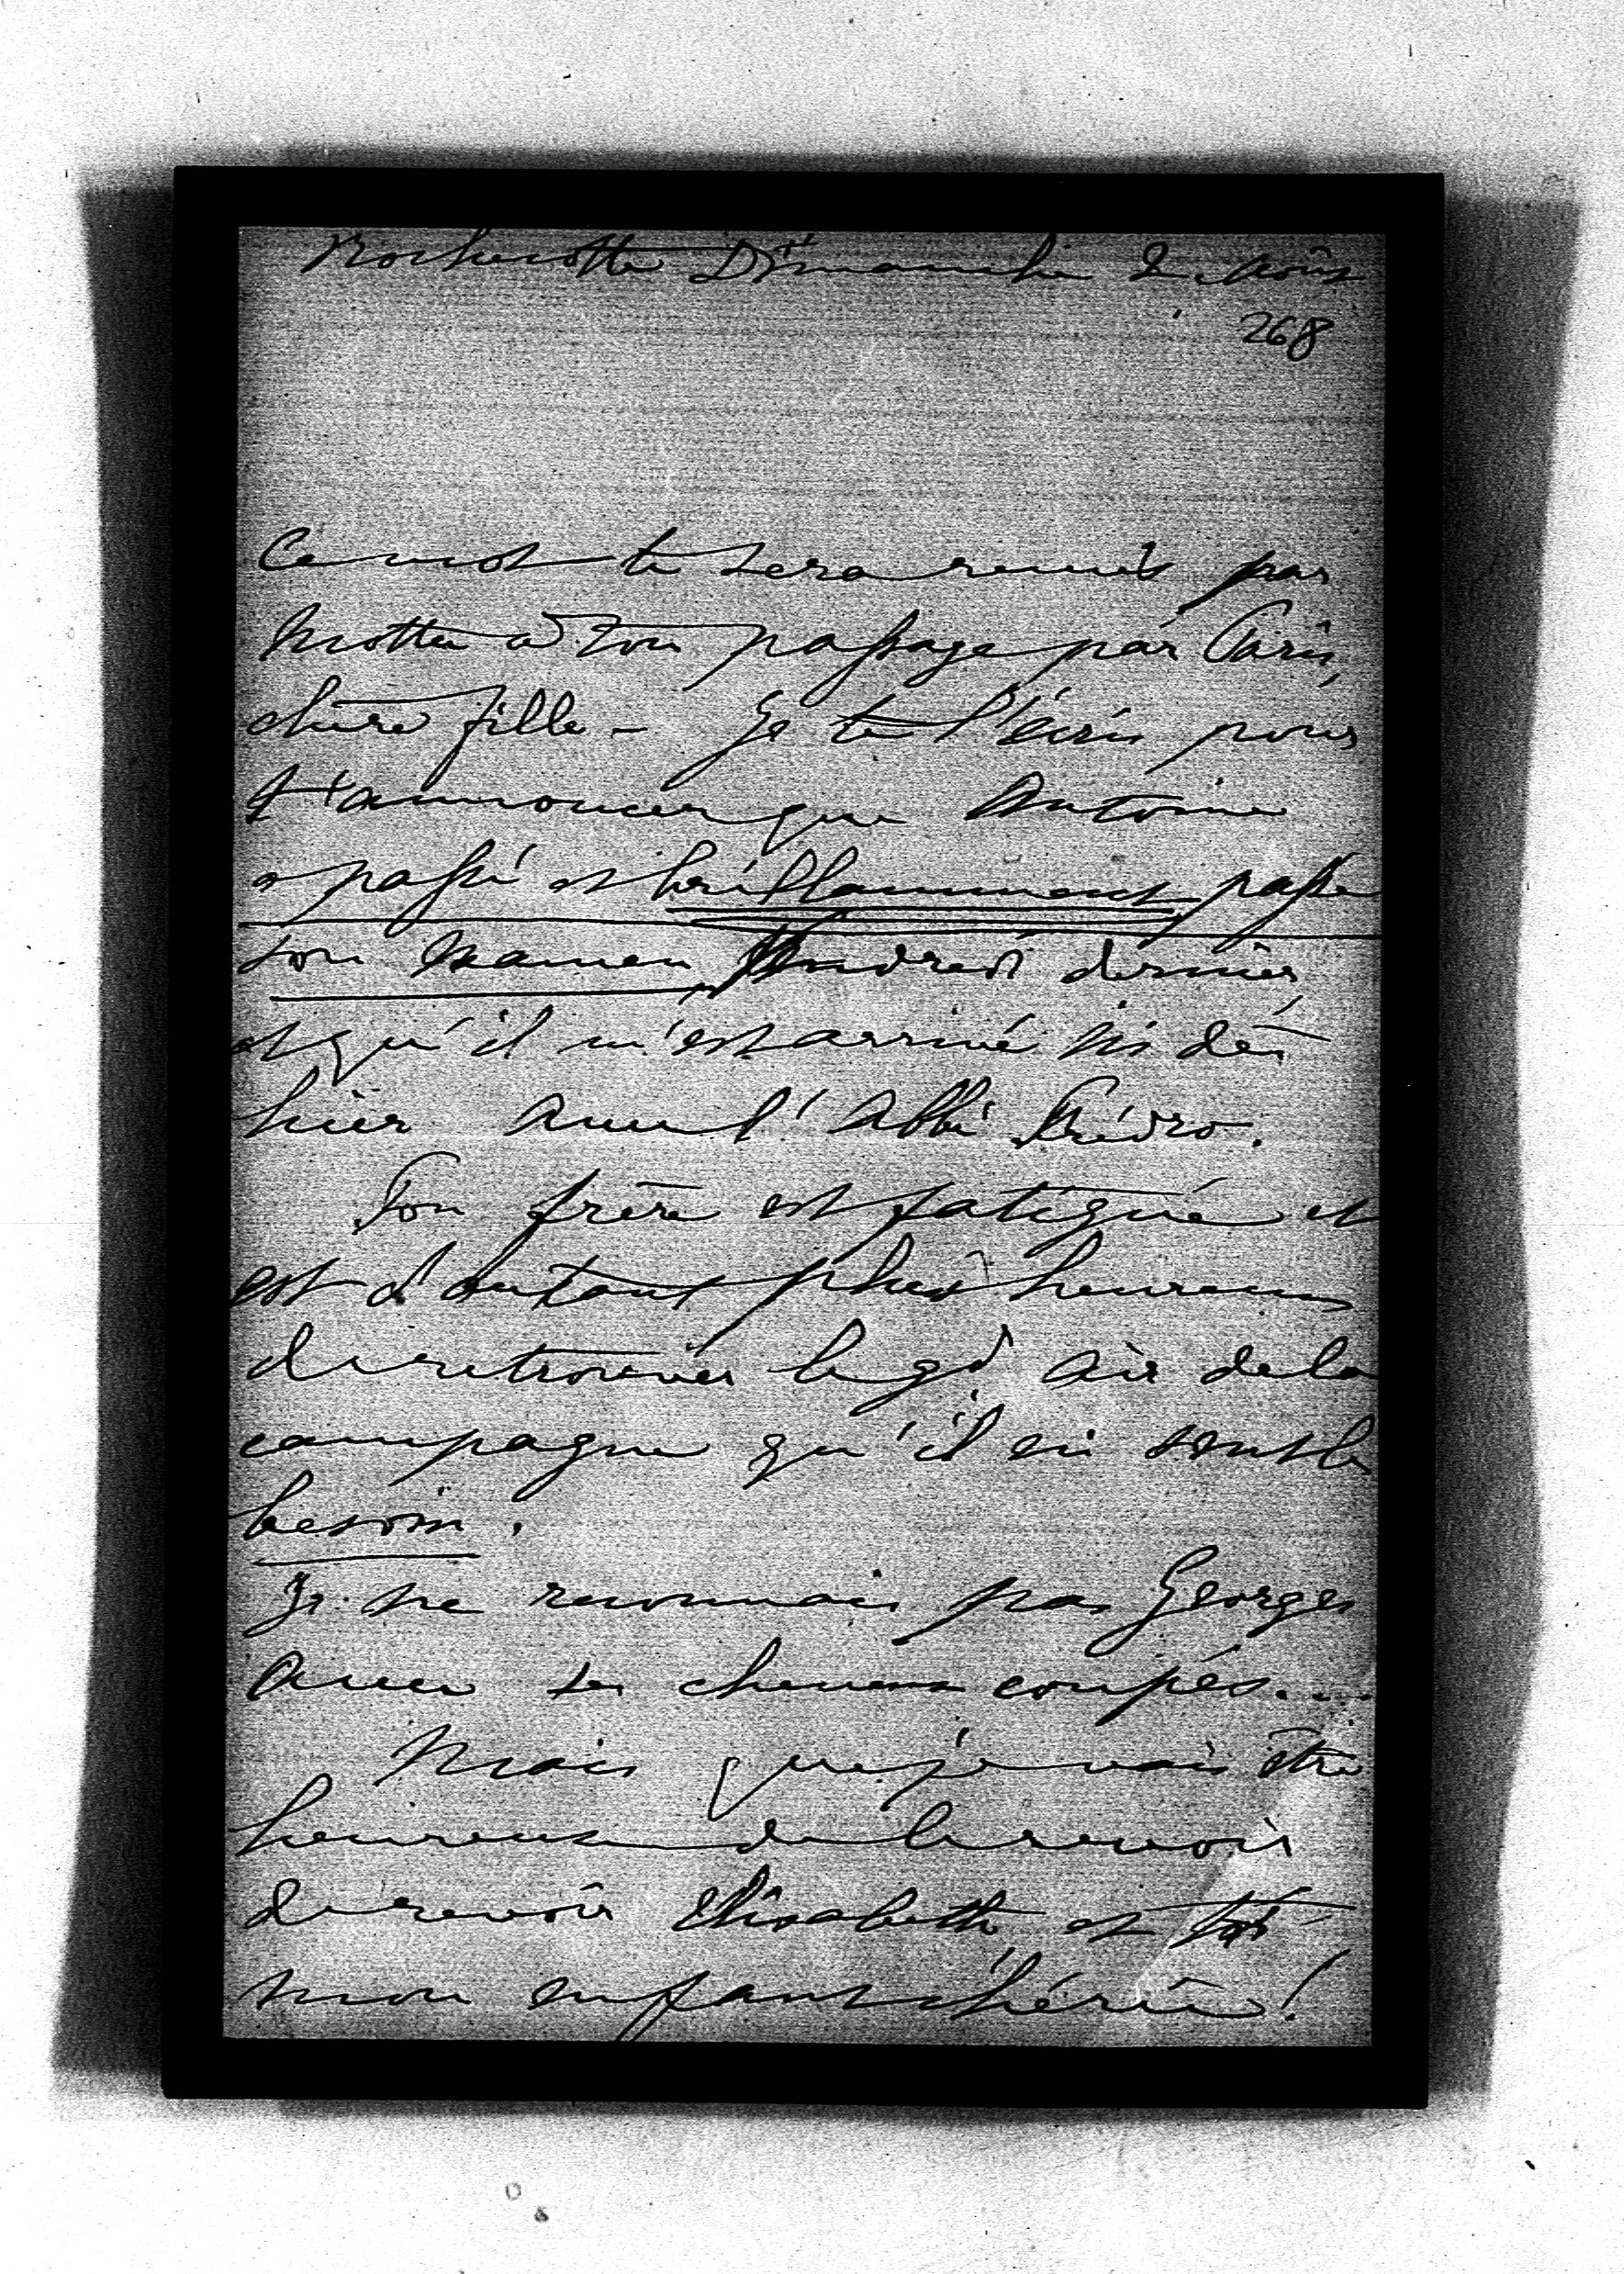 Rochecotte Dimanche 2 Août
268
Ce mot te sera remis par
Motte à ton passage par Paris,
chère fille – Je te l'écris pour
t'annoncer que Antoine
a passé et brillamment passé
son examen Vendredi dernier
et qu'il m'est arrivé ici dès
hier avec l'Abbé
Ton frère est fatigué et
est d'autant plus heureux
de retrouver le gd air de la
campagne qu'il en sent le
besoin.
Je ne reconnais pas Georges
avec ses cheveux coupés....
Mais que je vais être
heureuse de le revoir
de revoir Elisabeth et toi
mon enfant chérie!